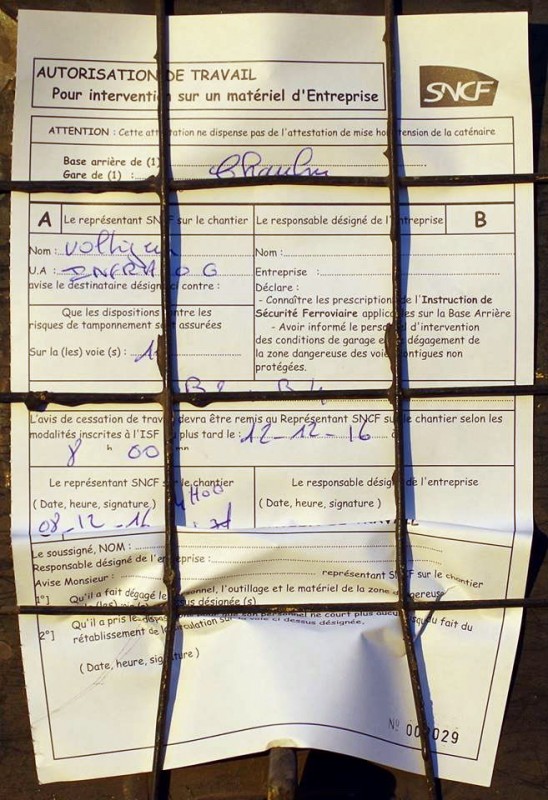 AUTORISATION DE TRAVAIL
Pour intervention sur un matériel d'Entreprise
SNCF
ATTENTION : Cette attestation ne dispense pas de l'attestation de mise hors tension de la caténaire
Base arrière de (1)
Gare de (1) : Chaulnes
A Le représentant SNCF sur le chantier
Nom :
U.A : INFRALOG
avise le destinataire désigné ci contre :
Que les dispositions contre les
risques de tamponnement sont assurées
Sur la (les) voie (s) :
Le responsable désigné de l'entreprise B
Nom :
Entreprise :
Déclare :
- Connaître les prescriptions de l'Instruction de
Sécurité Ferroviaire applicables sur la Base Arrière
- Avoir informé le personnel d'intervention
des conditions de garage et de dégagement de
la zone dangereuse des voies contigues non
protégées.
L'avis de cessation de travail devra être remis au Représentant SNCF sur le chantier selon les
modalités inscrites à l'ISF au plus tard le : 12-12-16 à
8 h 00 mn
Le représentant SNCF sur le chantier
(Date, heure, signature)
08-12-16
Le responsable désigné de l'entreprise
(Date, heure, signature)
Le soussigné, NOM :
Responsable désigné de l'entreprise :
Avise Monsieur : représentant SNCF sur le chantier
1°] Qu'il a fait dégagé le personnel, l'outillage et le matériel de la zone dangereuse
désignée (s)
2°] Qu'il a pris
rétablissement de la circulation sur la voie ci dessus désignée.
(Date, heure, signature)
N° 002029